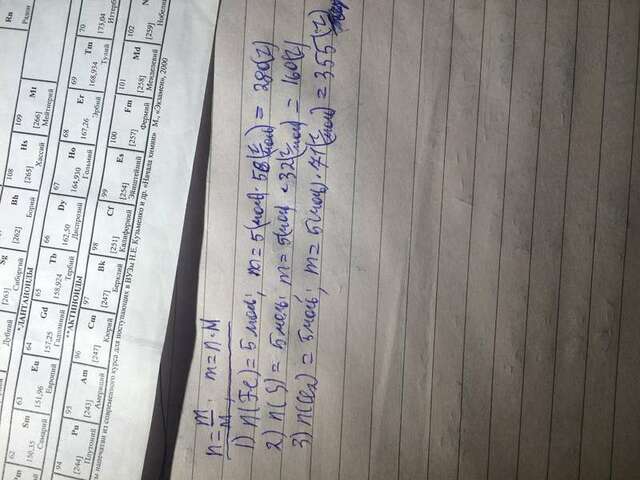 Дубний [263] Sg Сиборгий [262] Bh Борий 108 Hs [265] Хассий 109 Mt [266] Мейтнерий Rn Радон
*ЛАНТАНОИДЫ
Pm 62 Sm 150,35 Самарий 63 Eu 151,96 Европий 64 Gd 157,25 Гадолиний 65 Tb 158,924 Тербий 66 Dy 162,50 Диспрозий 67 Ho 164,930 Гольмий 68 Er 167,26 Эрбий 69 Tm 168,934 Тулий 70 173,04
**АКТИНОИДЫ
94 Pu [244] Плутоний 95 Am [243] Америций 96 Cm [247] Кюрий 97 Bk [247] Берклий 98 Cf [251] Калифорний 99 Es [254] Эйнштейний 100 Fm [257] Фермий 101 Md [258] Менделевий 102 [259]
напечатан из современного курса для поступающих в ВУЗы Н.Е. Кузьменко и др. «Начала химии» М., «Экзамен», 2000
n = m/M; m = n·M
1) n(Fe) = 5 моль; m = 5(моль) · 56(г/моль) = 280(г)
2) n(S) = 5 моль; m = 5(моль) · 32(г/моль) = 160(г)
3) n(Cl₂) = 5 моль; m = 5(моль) · 71(г/моль) = 355(г)